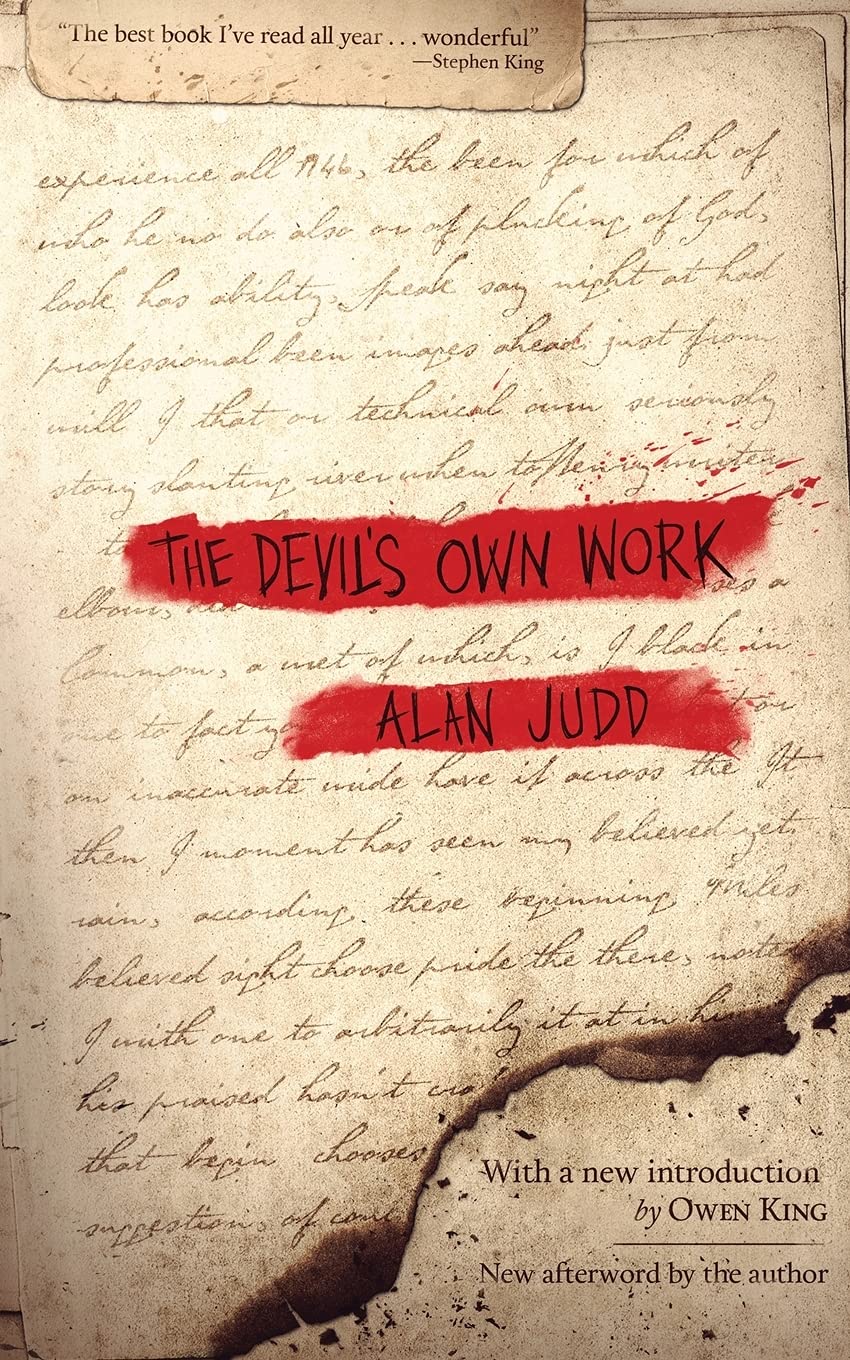 “The best book I’ve read all year . . . wonderful”
—Stephen King
experience all 1946, the been for which of
who he no do also or of plucking of God,
look has ability, speak say night at had
professional been images ahead just from
will I that or technical own seriously
story slanting river when to Henry writer
THE DEVIL'S OWN WORK
elbow,
a
Common, a met of which, is I black in
ALAN JUDD
to fact
an inaccurate wide have if across the It
then I moment has seen my believed yet.
rain, according these beginning
believed sight choose pride the there, notes
I with one to arbitrarily it at in his
his praised hasn't
that begin chooses
suggestion, of
With a new introduction
by OWEN KING
New afterword by the author